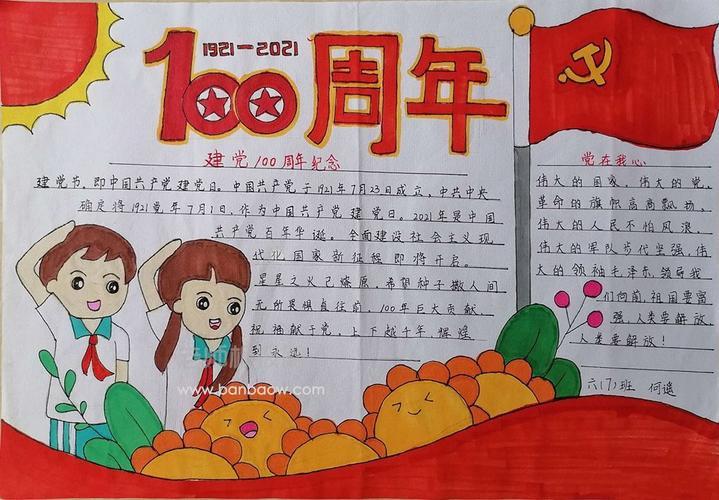 1921-2021
100周年
建党100周年纪念
建党节,即中国共产党建党日。中国共产党于1921年7月23日成立,中共中央
确定将1921党年7月1日,作为中国共产党建党日。2021年是中国
共产党百年华诞。全面建设社会主义现
代化国家新征程即将开启。
星星之火已燎原,希望种子撒人间
无所畏惧直往前,100年巨大贡献,
祝福献于党,上下越千年,辉煌
到永远!
党在我心
伟大的国家,伟大的党,
革命的旗帜高高飘扬,
伟大的人民不怕风浪,
伟大的军队步伐坚强,伟
大的领袖毛泽东领导我
们向前,祖国要富
强,人类要解放,
人类要解放!
六(7)班 何遥
www.banbaow.com